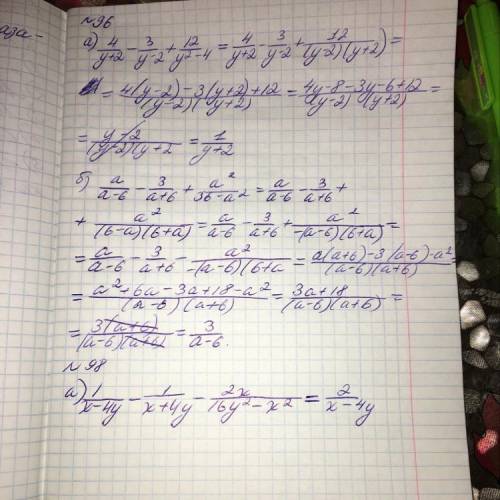 аза-
№96
а) 4/(y+2) - 3/(y-2) + 12/(y²-4) = 4/(y+2) - 3/(y-2) + 12/((y-2)(y+2)) =
= (4(y-2)-3(y+2)+12)/((y-2)(y+2)) = (4y-8-3y-6+12)/((y-2)(y+2)) =
= (y-2)/((y-2)(y+2) = 1/(y+2)
б) a/(a-6) - 3/(a+6) + a²/(36-a²) = a/(a-6) - 3/(a+6) +
+ a²/((6-a)(6+a)) = a/(a-6) - 3/(a+6) + a²/(-(a-6)(6+a)) =
= a/(a-6) - 3/(a+6) - a²/(-(a-6)(6+a) = (a(a+6)-3(a-6)-a²)/((a-6)(a+6))
= (a²+6a-3a+18-a²)/((a-6)(a+6)) = (3a+18)/((a-6)(a+6)) =
= (3(a+6))/((a-6)(a+6)) = 3/(a-6).
№98
а) 1/(x-4y) - 1/(x+4y) - 2x/(16y²-x²) = 2/(x-4y)